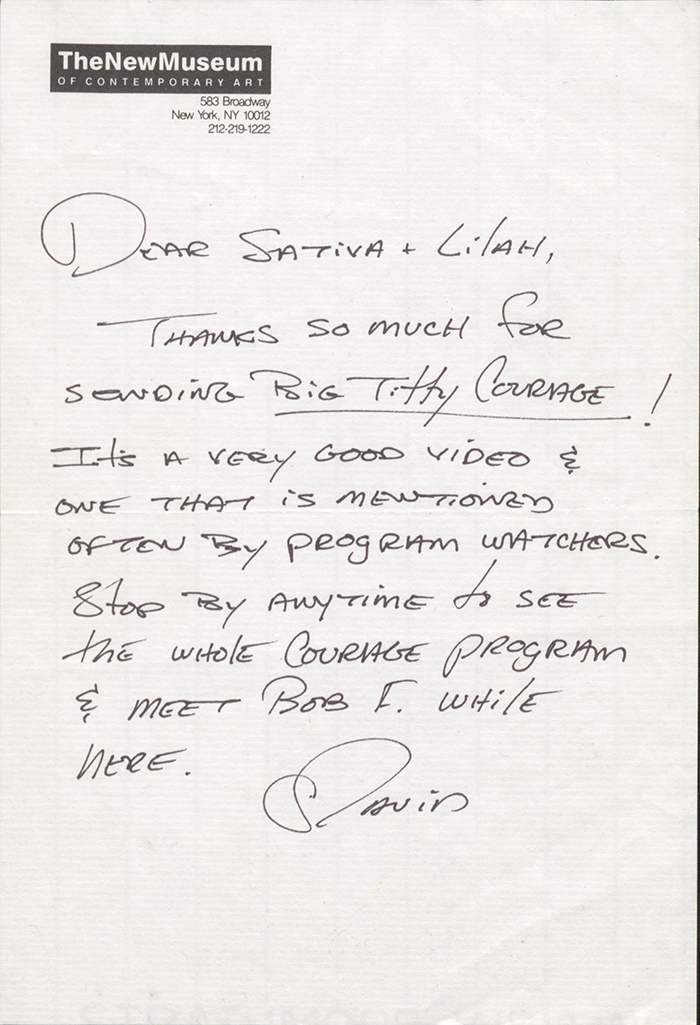 TheNewMuseum
OF CONTEMPORARY ART
583 Broadway
New York, NY 10012
212-219-1222
DEAR SATIVA + LiLAH,
THANKS SO MUCH FOR
SENDING BIG TITTY COURAGE!
It's A VERY GOOD VIDEO &
ONE THAT iS MENTIONED
OFTEN By PROGRAM WATCHERS.
Stop By ANYTIME to SEE
the WHOLE COURAGE PROGRAM
& MEET BOB F. WHILE
HERE.
DAVID